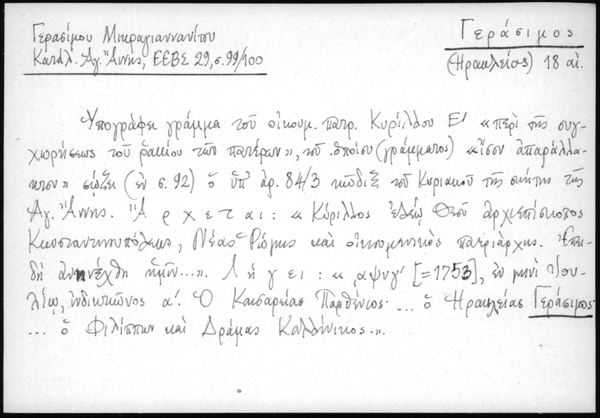 Γερασίμου Μικραγιαννανίτου
Κατάλ. Ἁγ. Ἄννης, ΕΕΒΣ 29, σ. 99/100
Γεράσιμος
(Ἡρακλείας) 18 αἰ.
Ὑπογράφει γράμμα τοῦ οἰκουμ. πατρ. Κυρίλλου Ε' «περὶ τῆς συγ-
χωρήσεως τοῦ τῶν πατέρων», τοῦ ὁποίου (γράμματος) «ἴσον ἀπαράλλα-
κτον» σῴζει (ἐν σ. 92) ὁ ὑπ' ἀρ. 84/3 κῶδιξ τοῦ Κυριακοῦ τῆς σκήτης τῆς
Ἁγ. Ἄννης. Ἄρχεται: «Κύριλλος ἐλέῳ Θεοῦ ἀρχιεπίσκοπος
Κωνσταντινουπόλεως, Νέας Ῥώμης καὶ οἰκουμενικὸς πατριάρχης. Ἐπει-
δὴ ἀνηνέχθη ἡμῖν...». Λήγει: «͵αψνγ' [=1753], ἐν μηνὶ Ἰου-
λίῳ, ἰνδικτιῶνος α'. Ὁ Καισαρείας Παρθένιος... ὁ Ἡρακλείας Γεράσιμος
... ὁ Φιλίππων καὶ Δράμας Καλλίνικος».